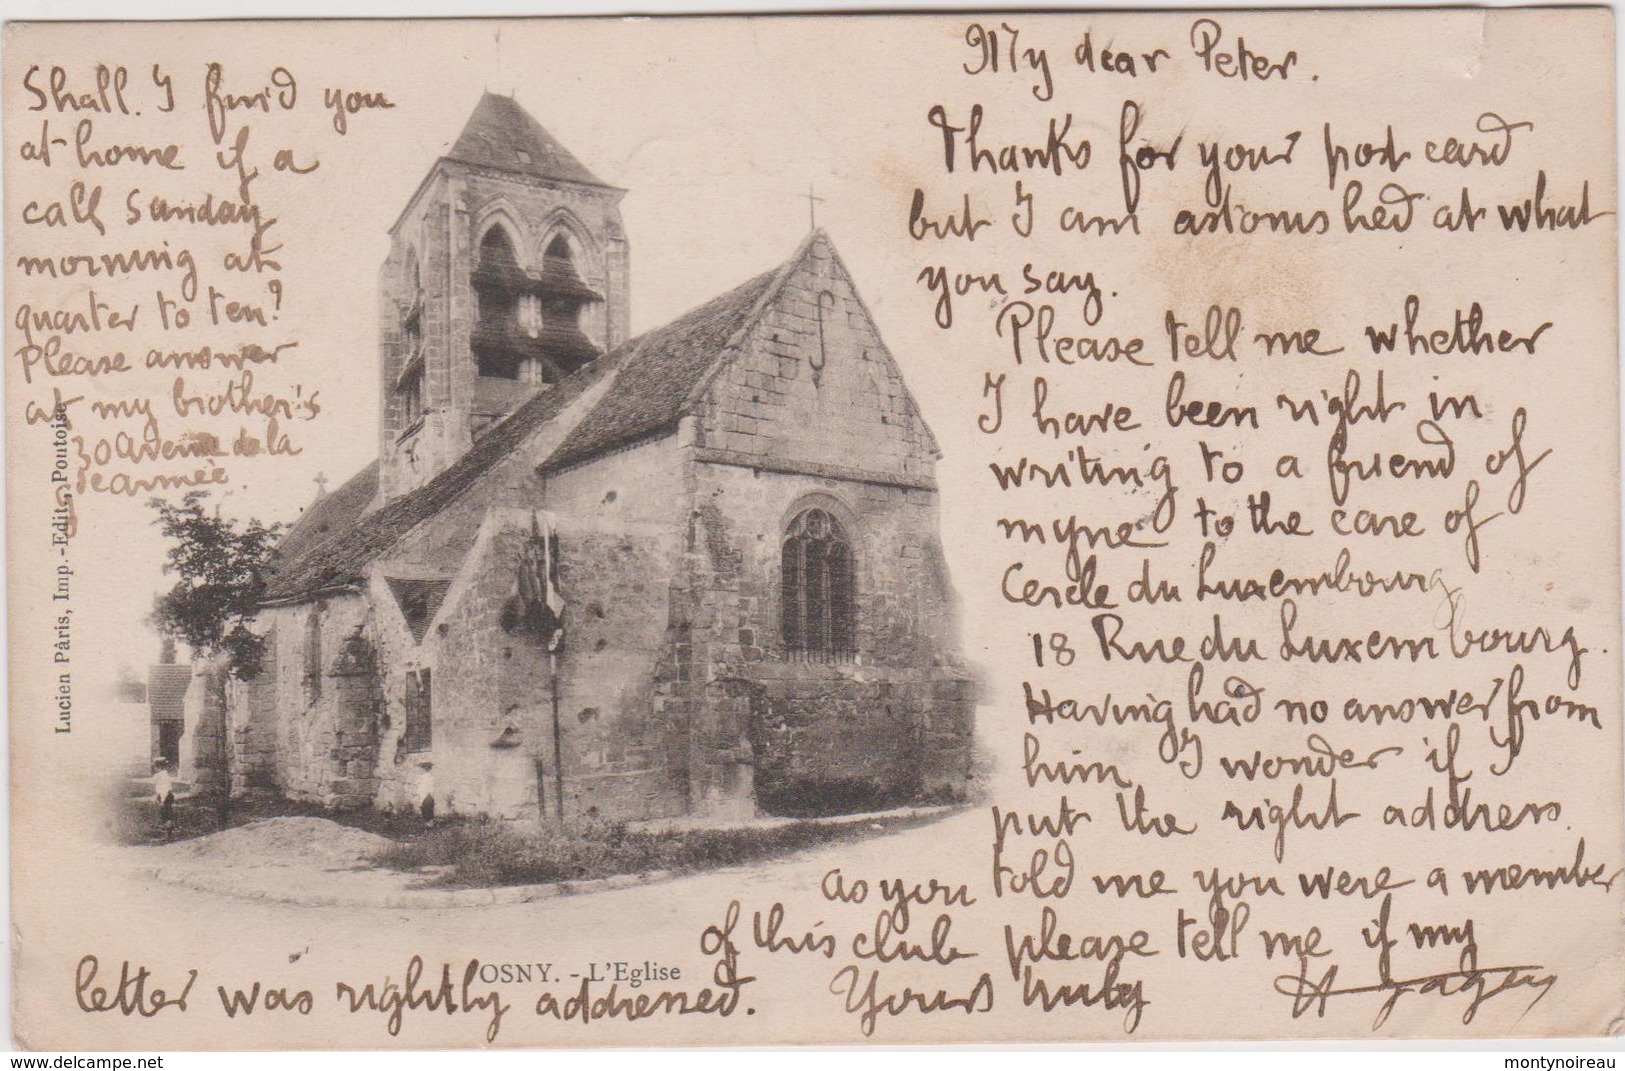 My dear Peter.
Thanks for your post card
but I am astonished at what
you say.
Please tell me whether
I have been right in
writing to a friend of
myne to the care of
Cercle du Luxembourg
18 Rue du Luxembourg.
Having had no answer from
him I wonder if I
put the right address.
as you told me you were a member
of this club please tell me if my
letter was rightly addressed. Yours truly
Shall I find you
at home if a
call Sunday
morning at
quarter to ten?
Please answer
at my brother's
30 avenue de la
Gde armée
Lucien Pâris, Imp.-Edit., Pontoise
OSNY. - L'Eglise
delcampe.net
montynoireau